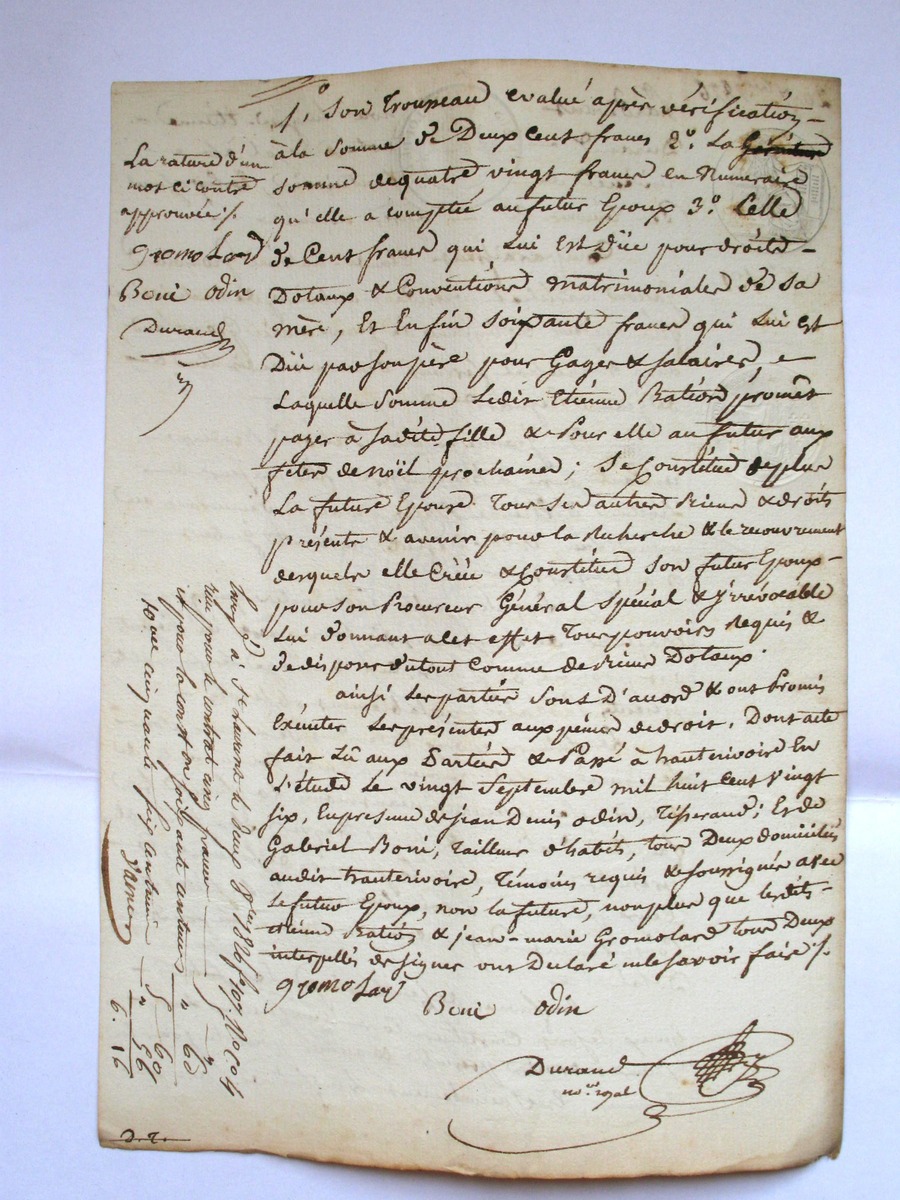 1°, Son Trousseau evalué après vérification
à la Somme de Deux Cent francs 2°. La
Somme de quatre vingt francs en Numeraire
qu'elle a comptée au futur Epoux 3°. Celle
de Cent francs qui Lui Est düe pour droits
Dotaux & Conventions matrimoniales de Sa
mère, Et Enfin Soixante francs qui Lui est
Düe par Son père pour Gages & Salaires,
Laquelle Somme Ledit Etienne Ration promet
payer à Sadite fille & Pour elle au futur aux
fêtes de Nöël prochaines; Se Constitue de plus
La future Epouse Tous Ses autres Biens & droits
présents & avenir pour la Recherche & le recouvrement
desquels elle Créée & Constitue Son futur Epoux
pour Son Procureur Général Spécial & Yrrévocable
Lui donnant a cet effet Tous pouvoirs Requis &
de disposer du tout Comme de Biens Dotaux.
ainsi Les parties Sont D'acord & ont Promis
Exécuter Les présentes aux peines de droit. Dont acte
fait Lû aux Parties & Passé à hauterivoire En
L'étude Le vingt Septembre mil huit Cent vingt
Six, En presence de jean Denis odin, Tisserand; Et de
Gabriel Boni, Tailleur d'habits, tous Deux domiciliés
audit hauterivoire, Témoins requis & Soussignés avec
Le futur Epoux, non la future, non plus que lesdits
etienne Ration & jean-marie Gromolard tous Deux
interpellés de signer ont Declaré ne le savoir faire /.
gromolard
Boni odin
Durand
no.re royal
La rature d'un
mot ci contre
approuvée /.
gromolard
Boni odin
Durand
Enreg.é à St Laurent le deux 8bre 1826
reçu pour le contrat cinq francs
et pour la constitution soixante centimes
Dixième cinquante six centimes
5 "
" 60
5 60
" 56
6. 16